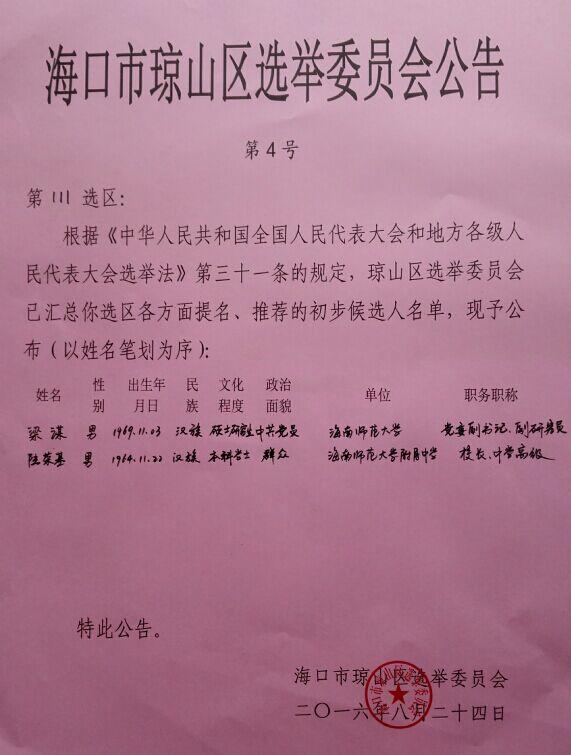 海口市琼山区选举委员会公告
第4号
第 111 选区：
根据《中华人民共和国全国人民代表大会和地方各级人
民代表大会选举法》第三十一条的规定，琼山区选举委员会
已汇总你选区各方面提名、推荐的初步候选人名单，现予公
布（以姓名笔划为序）：
姓名 性别 出生年月日 民族 文化程度 政治面貌 单位 职务职称
梁谋 男 1969.11.03 汉族 硕士研究生 中共党员 海南师范大学 党委副书记、副研究员
陆荣基 男 1964.11.22 汉族 本科学士 群众 海南师范大学附属中学 校长、中学高级
特此公告。
海口市琼山区选举委员会
二〇一六年八月二十四日